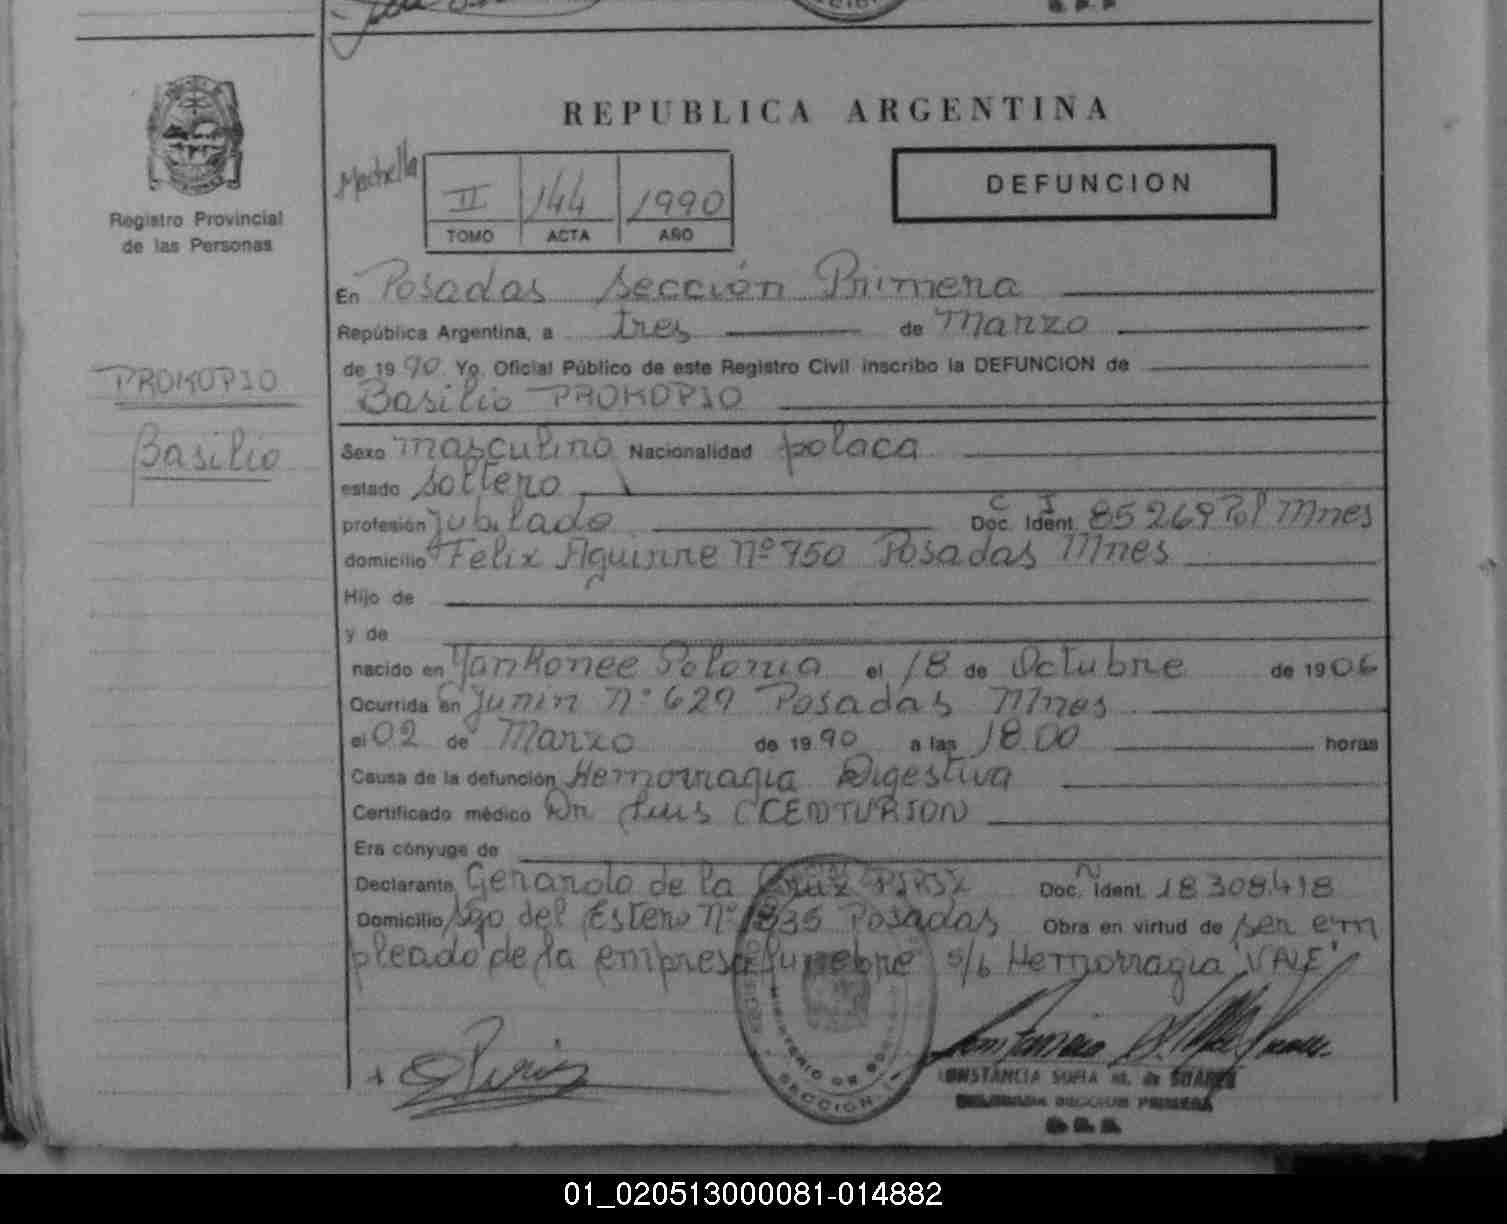 REPUBLICA ARGENTINA
Registro Provincial
de las Personas
II 144 1990
TOMO ACTA AÑO
DEFUNCION
En Posadas sección Primera
República Argentina, a tres de Marzo
de 1990 Yo, Oficial Público de este Registro Civil inscribo la DEFUNCION de
Basilio PROKOPIO
PROKOPIO
Basilio
Sexo masculino Nacionalidad polaca
estado soltero
profesión jubilado Doc. Ident. C I 85269 Pol Mnes
domicilio Felix Aguirre Nº 750 Posadas Mnes
Hijo de
y de
nacido en Yankonee Polonia el 18 de Octubre de 1906
Ocurrida en Junin Nº 629 Posadas Mnes
el 02 de Marzo de 1990 a las 18.00 horas
Causa de la defunción Hemorragia Digestiva
Certificado médico Dr Luis CENTURION
Era cónyuge de
Declarante Gerardo de la Cruz Doc. N Ident. 18308418
Domicilio Sgo del Estero Nº 1835 Posadas Obra en virtud de ser em
pleado de la empresa funebre s/b Hemorragia "VALE"
MINISTERIO DE GOBIERNO
SECCION 1
CONSTANCIA SOFIA M. de SUAREZ
DELEGADA SECCION PRIMERA
01_020513000081-014882